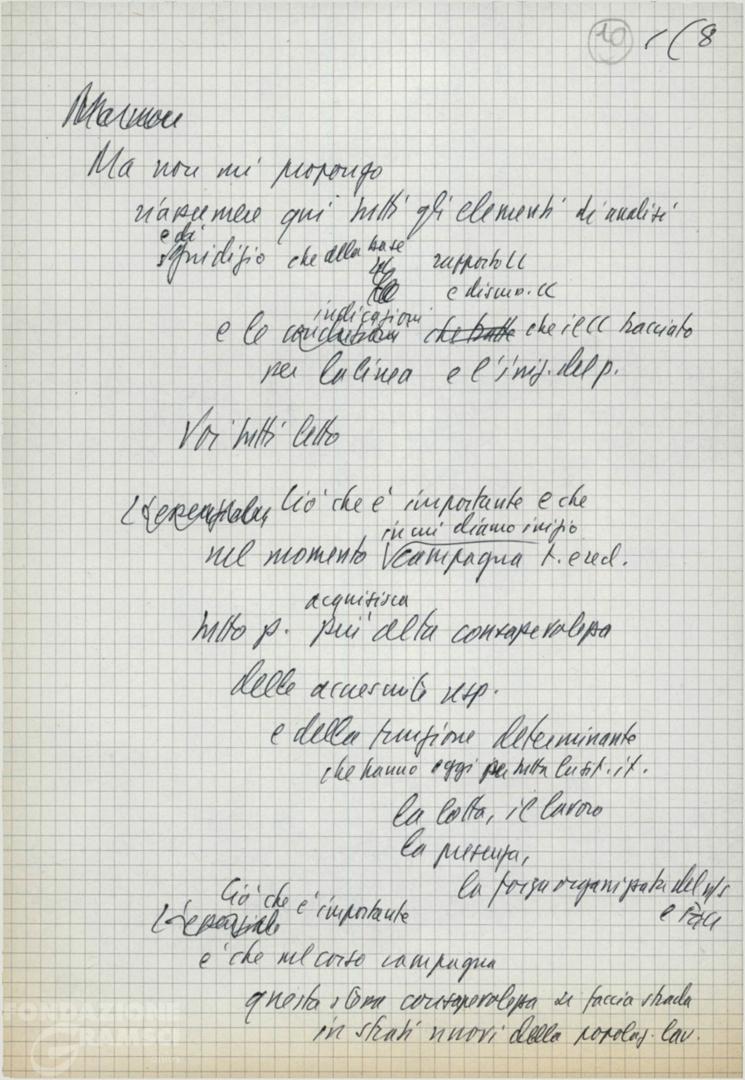 10 8
Ma non
Ma non mi propongo
riassumere qui tutti gli elementi di analisi
e di
giudizio che della base rapporto CC
e discus. CC
indicazioni
e le conclusioni che il CC tracciato
per la linea e l'iniz. del p.
Voi tutti letto
L'essenziale Ciò che è importante e che
in cui diamo inizio
nel momento campagna t. e recl.
acquisisca
tutto p. più alta consapevolezza
delle accresciute resp.
e della funzione determinante
che hanno oggi per tutta la sit. it.
la lotta, il lavoro
la presenza,
la forza organizzata del n/s
Ciò che è importante
L'essenziale
è che nel corso campagna
questa stessa consapevolezza si faccia strada
in strati nuovi della popolaz. lav.
FONDAZIONE
Gramsci